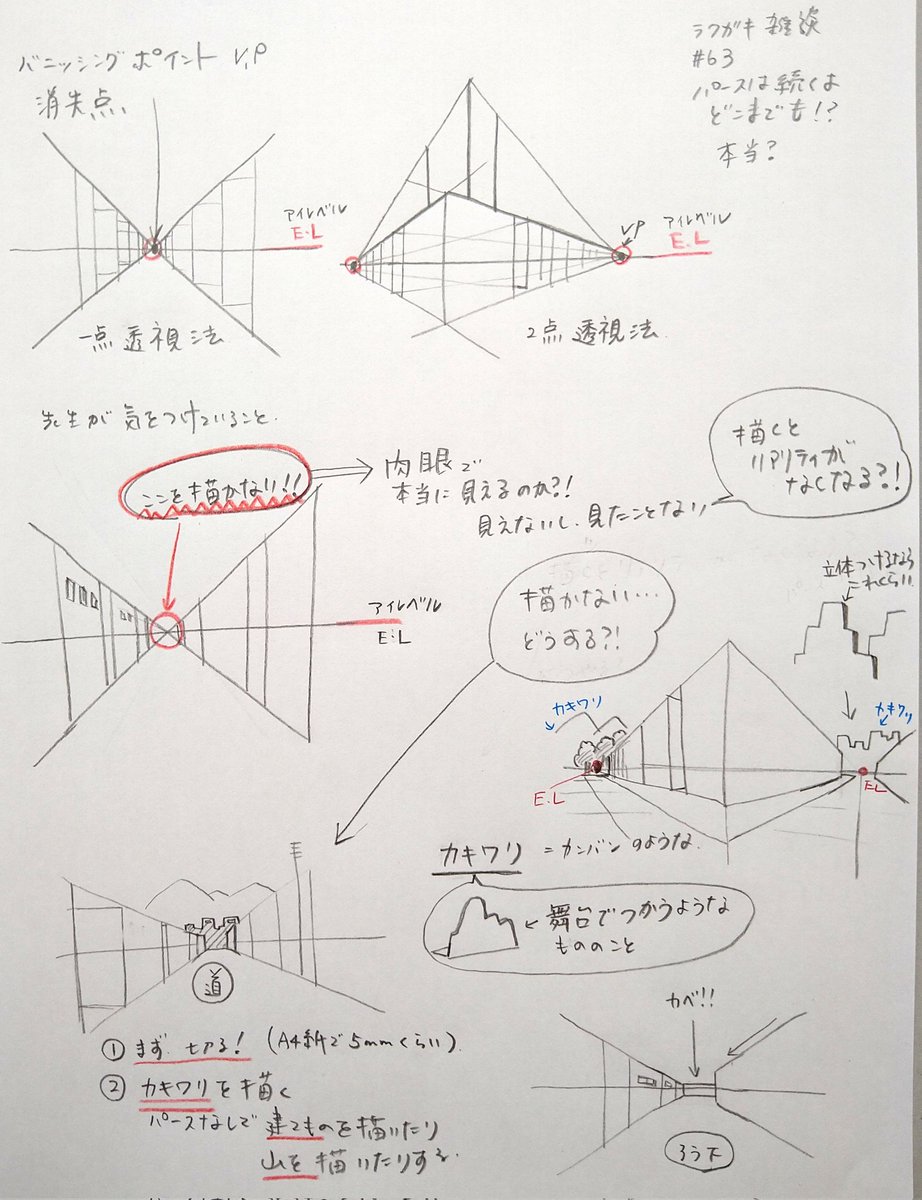 バニッシングポイント V.P
消失点
ラクガキ雑談
#63
パースは続くよ
どこまでも!?
本当?
アイレベル
E.L
VP
アイレベル
E.L
一点透視法
2点透視法
先生が気をつけていること.
ここを描かない!!
肉眼で
本当に見えるのか?!
見えないし、見たことない
描くと
リアリティが
なくなる?!
アイレベル
E.L
描かない…
どうする?!
立体つけるなら
これくらい
カキワリ
カキワリ
E.L
E.L
カキワリ = カンバンのような
舞台でつかうような
もののこと
道
① まず 切る! (A4紙で5mmくらい)
② カキワリを描く
パースなしで建てものを描いたり
山を描いたりする.
カベ!!
ろう下